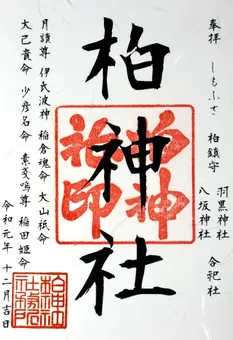 奉拝 しもふさ 柏鎮守 羽黒神社 八坂神社 合祀社
柏神社
柏神社印
月讀尊 伊氐波神 稲倉魂命 大山祇命
大己貴命 少彦名命 素戔嗚尊 稲田姫命
令和元年 十二月吉日
柏神社社務所之印